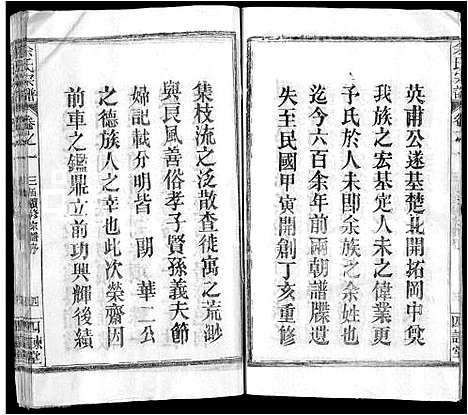 英甫公遂基楚北開拓岡中奠
我族之宏基定人未之偉業更
子氏於人未即余族之余姓也
迄今六百余年前兩朝譜牒遺
失至民國甲寅開創丁亥重修
集枝流之泛散查徙寓之荒渺
與良風善俗孝子賢孫義夫節
婦記載分明皆 朗 華二公
之德族人之幸也此次榮膺因
前車之鑑鼎立前功興輝後績
余氏宗譜
卷之一
三屆續修宗譜序
四
四諫堂